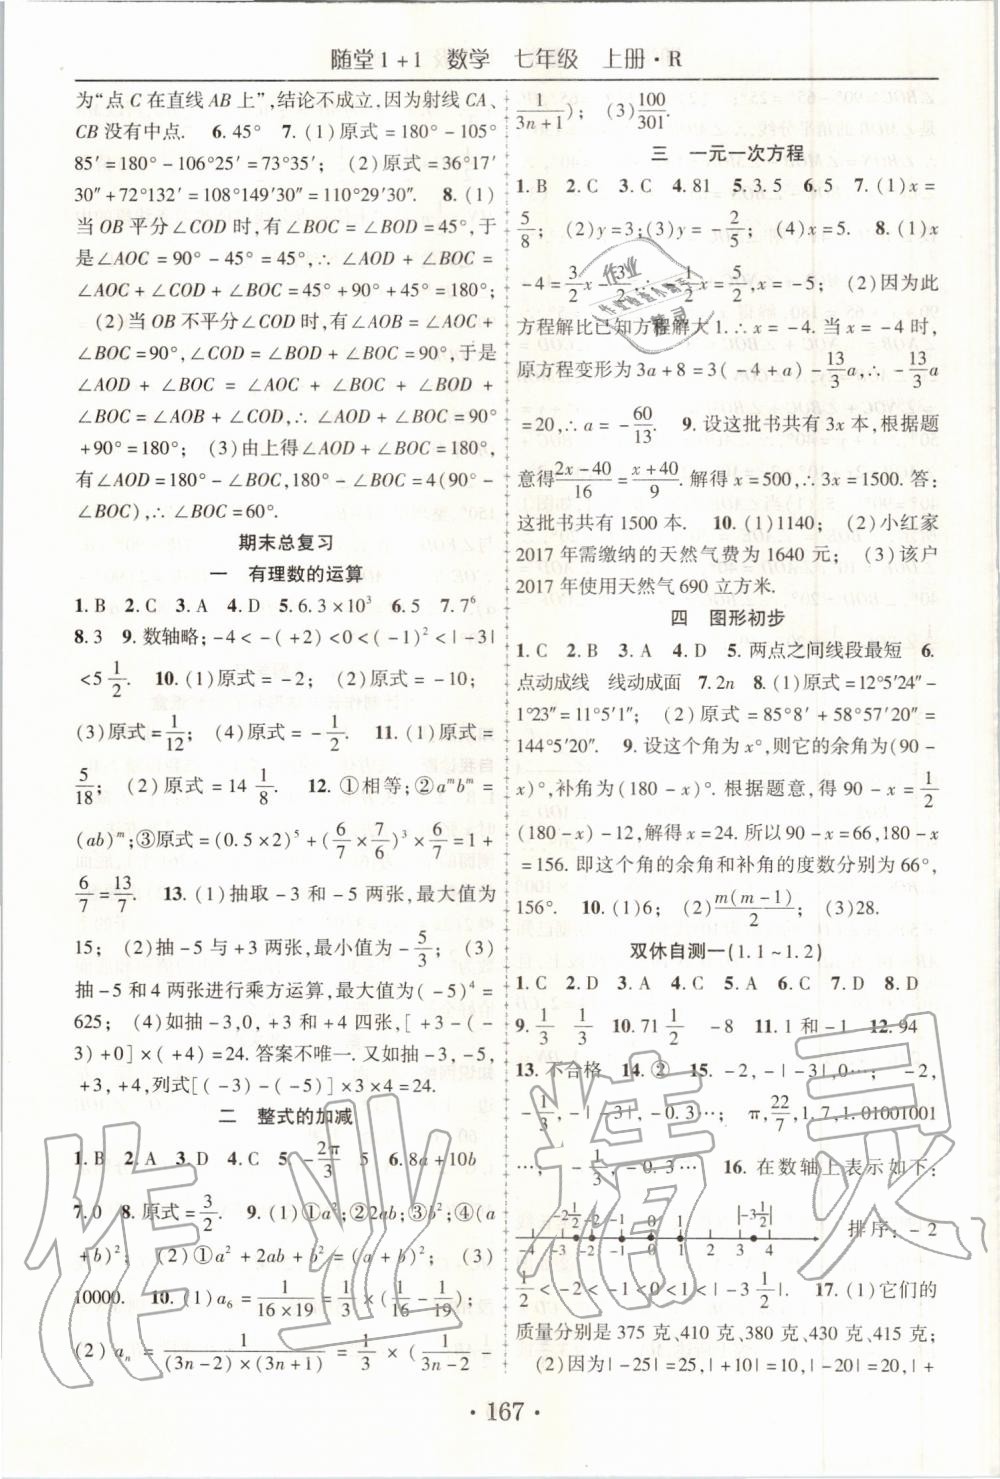 随堂1+1 数学 七年级 上册·R
为“点C在直线AB上”,结论不成立,因为射线CA、
CB没有中点. 6.45° 7.(1)原式=180°-105°
85′=180°-106°25′=73°35′; (2)原式=36°17′
30″+72°132′=108°149′30″=110°29′30″. 8.(1)
当OB平分∠COD时,有∠BOC=∠BOD=45°,于
是∠AOC=90°-45°=45°,∴∠AOD+∠BOC=
∠AOC+∠COD+∠BOC=45°+90°+45°=180°;
(2)当OB不平分∠COD时,有∠AOB=∠AOC+
∠BOC=90°,∠COD=∠BOD+∠BOC=90°,于是
∠AOD+∠BOC=∠AOC+∠BOC+∠BOD+
∠BOC=∠AOB+∠COD,∴∠AOD+∠BOC=90°
+90°=180°; (3)由上得∠AOD+∠BOC=180°,
有∠AOD=180°-∠BOC,180°-∠BOC=4(90°-
∠BOC),∴∠BOC=60°.
期末总复习
一 有理数的运算
1.B 2.C 3.A 4.D 5.6.3×10³ 6.5 7.7⁶
8.3 9.数轴略;-4<-(+2)<0<(-1)²<|-3|
<5 1/2. 10.(1)原式=-2; (2)原式=-10;
(3)原式=1/12; (4)原式=-1/2. 11.(1)原式=
5/18; (2)原式=14 1/8. 12.①相等;②aᵐbᵐ=
(ab)ᵐ;③原式=(0.5×2)⁵+(6/7×7/6)³×6/7=1+
6/7=13/7. 13.(1)抽取-3和-5两张,最大值为
15; (2)抽-5与+3两张,最小值为-5/3; (3)
抽-5和4两张进行乘方运算,最大值为(-5)⁴=
625; (4)如抽-3,0,+3和+4四张,[+3-(-
3)+0]×(+4)=24.答案不唯一.又如抽-3,-5,
+3,+4,列式[(-3)-(-5)]×3×4=24.
二 整式的加减
1.B 2.A 3.D 4.C 5.-2π/3 5 6.8a+10b
7.0 8.原式=3/2. 9.(1)①a²;②2ab;③b²;④(a
+b)²; (2)①a²+2ab+b²=(a+b)²; (3)
10000. 10.(1)a₆=1/(16×19)=1/3×(1/16-1/19);
(2)aₙ=1/((3n-2)×(3n+1))=1/3×(1/(3n-2)-
1/(3n+1)); (3)100/301.
三 一元一次方程
1.B 2.C 3.C 4.81 5.3.5 6.5 7.(1)x=
5/8; (2)y=3;(3)y=-2/5; (4)x=5. 8.(1)x
-4=3/2x-3/2 1/2x=5/2,x=-5; (2)因为此
方程解比已知方程解大1.∴x=-4.当x=-4时,
原方程变形为3a+8=3(-4+a)-13/3a,∴-13/3a
=20,∴a=-60/13. 9.设这批书共有3x本,根据题
意得(2x-40)/16=(x+40)/9.解得x=500,∴3x=1500.答:
这批书共有1500本. 10.(1)1140; (2)小红家
2017年需缴纳的天然气费为1640元; (3)该户
2017年使用天然气690立方米.
四 图形初步
1.C 2.B 3.A 4.D 5.两点之间线段最短 6.
点动成线 线动成面 7.2n 8.(1)原式=12°5′24″-
1°23″=11°5′1″; (2)原式=85°8′+58°57′20″=
144°5′20″. 9.设这个角为x°,则它的余角为(90-
x)°,补角为(180-x)°.根据题意,得90-x=1/2
(180-x)-12,解得x=24.所以90-x=66,180-x
=156.即这个角的余角和补角的度数分别为66°,
156°. 10.(1)6; (2)m(m-1)/2; (3)28.
双休自测一(1.1~1.2)
1.C 2.D 3.A 4.C 5.A 6.C 7.D 8.D
9.1/3 1/3 10.71 1/2 -8 11.1和-1 12.94
13.不合格 14.② 15.-2,-|-3|,0… -2,
-1/3,-|-3|,-0.3…; π,22/7,1.7,1.01001001
…; -1/3,-0.3… 16.在数轴上表示如下:
-2 1/2 -2 -1 0 1 |-3 1/2| 排序:-2
-4 -3 -2 -1 0 1 2 3 4
1/2<-2<-1<0<1<|-3 1/2|. 17.(1)它们的
质量分别是375克、410克、380克、430克、415克;
(2)因为|-25|=25,|+10|=10,|-20|=20,|+
·167·
作业精灵